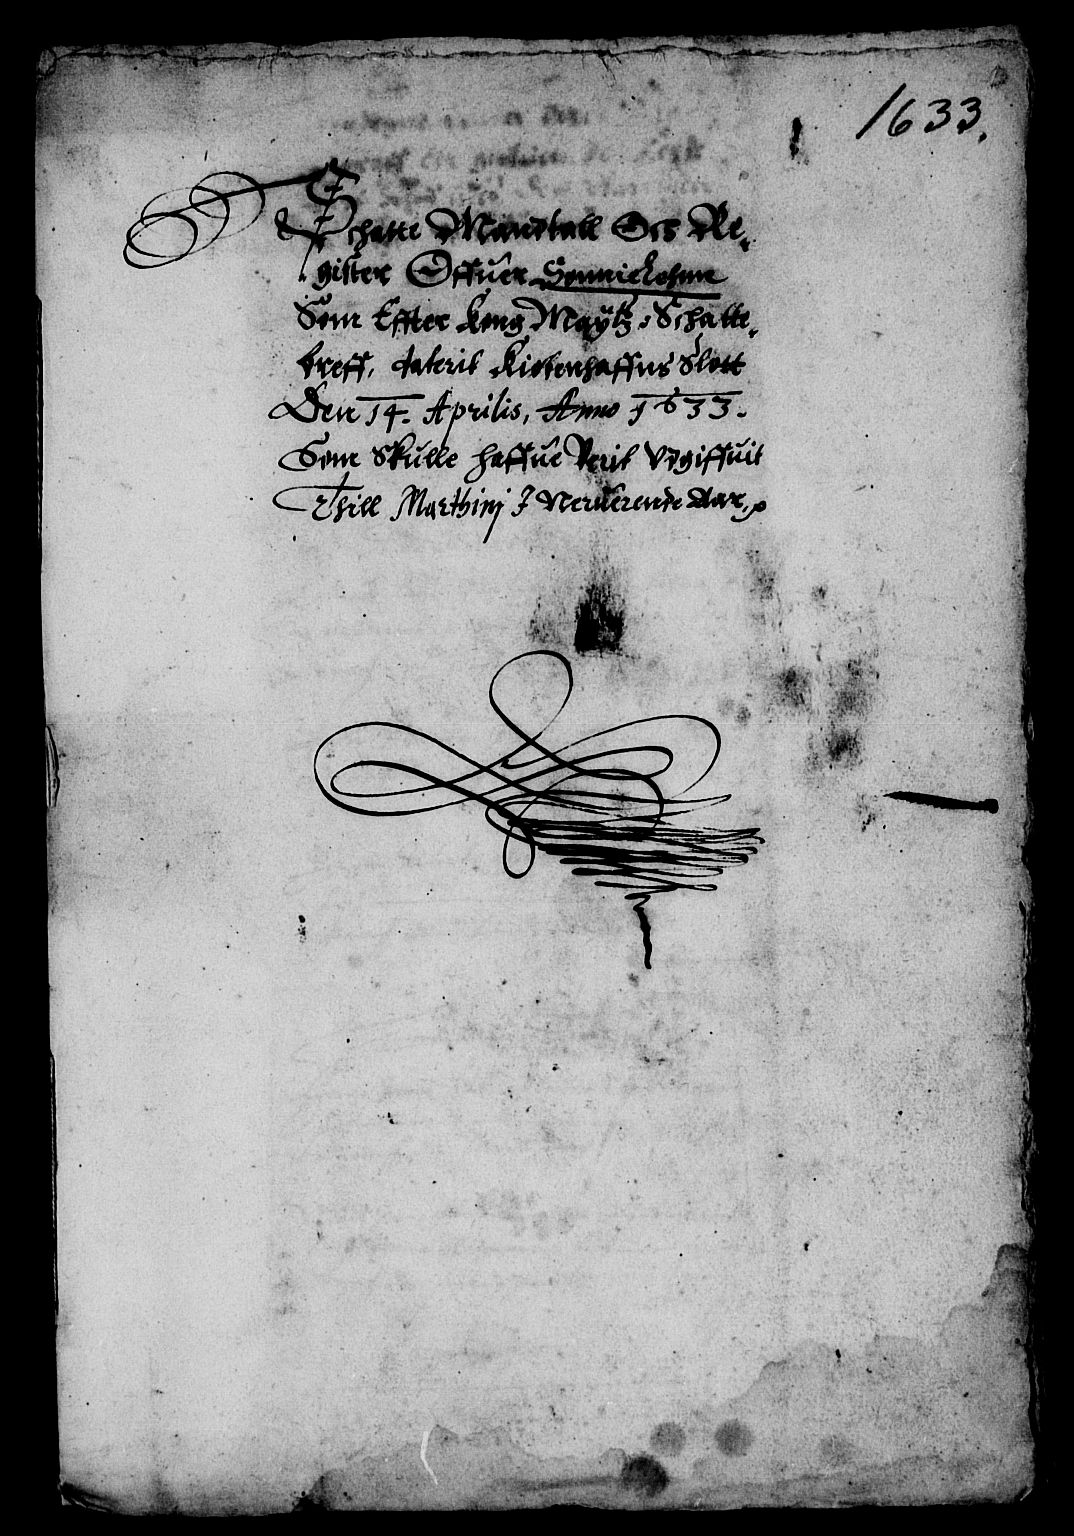 1633.
Schatte Mandtall Och Re-
gister Offuer Sönnielehnn
Som Effter Kong Maÿtz Schatte-
breff, daterit Kiøbenhaffns Slott
Den 14. Aprilis, Anno 1633.
Som Skulle haffue Verit Vdgiffuit
Thill Marthinj I Neruerende Aar